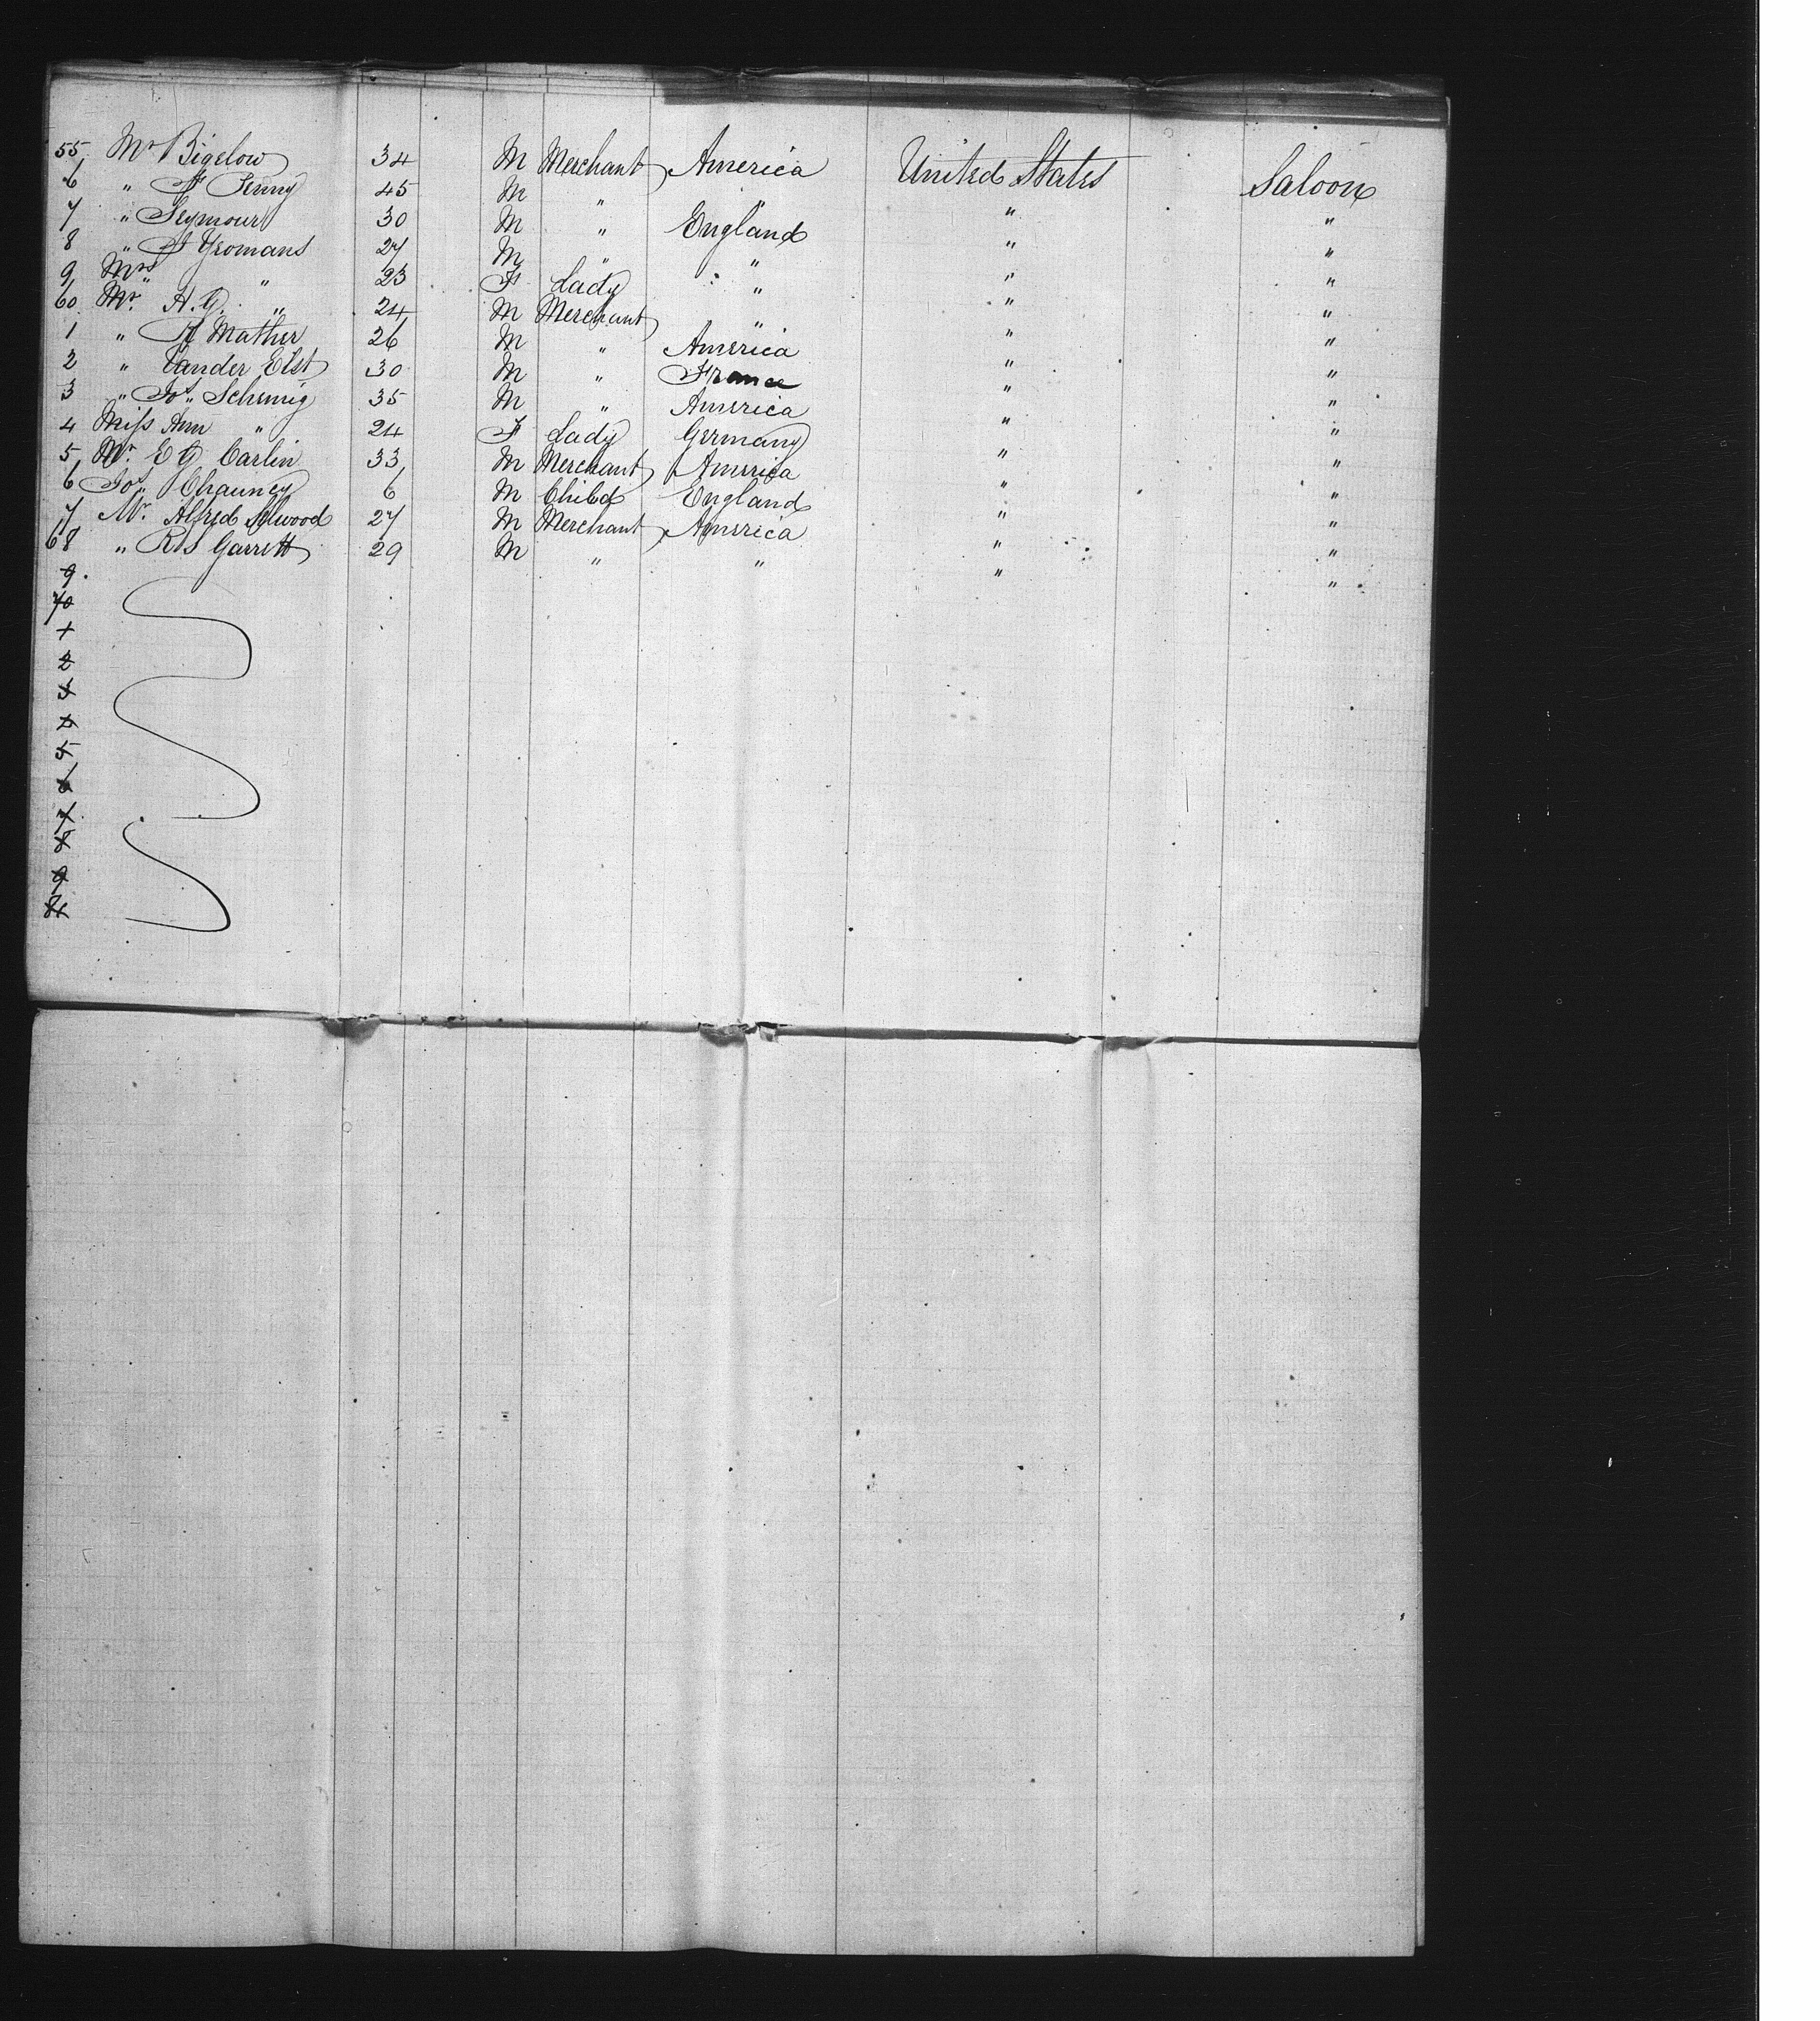 55 Mr Bigelow 34 M Merchant America United States Saloon
6 " F Penny 45 M " " " "
7 " Seymour 30 M " England " "
8 " Yeomans 27 M " " " "
9 Mrs " " 23 F Lady " " "
60 Mr. A.G. " 24 M Merchant " " "
1 " Mather 26 M " America " "
2 " Vander Elst 30 M " France " "
3 " Jos. 35 M " America " "
4 Miss Ann " 24 F Lady Germany " "
5 Mr. E G Carlin 33 M Merchant America " "
6 Jos. Chauncey 6 M Child England " "
7 Mr. Alfred Selwood 27 M Merchant America " "
68 " R S Garrett 29 M " " " "
9
70
1
2
3
4
5
6
7
8
9